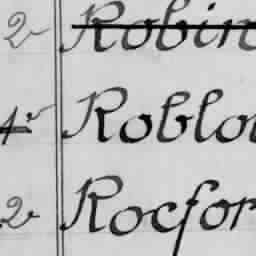 2 Robin
4 Roblo
2 Rocfor